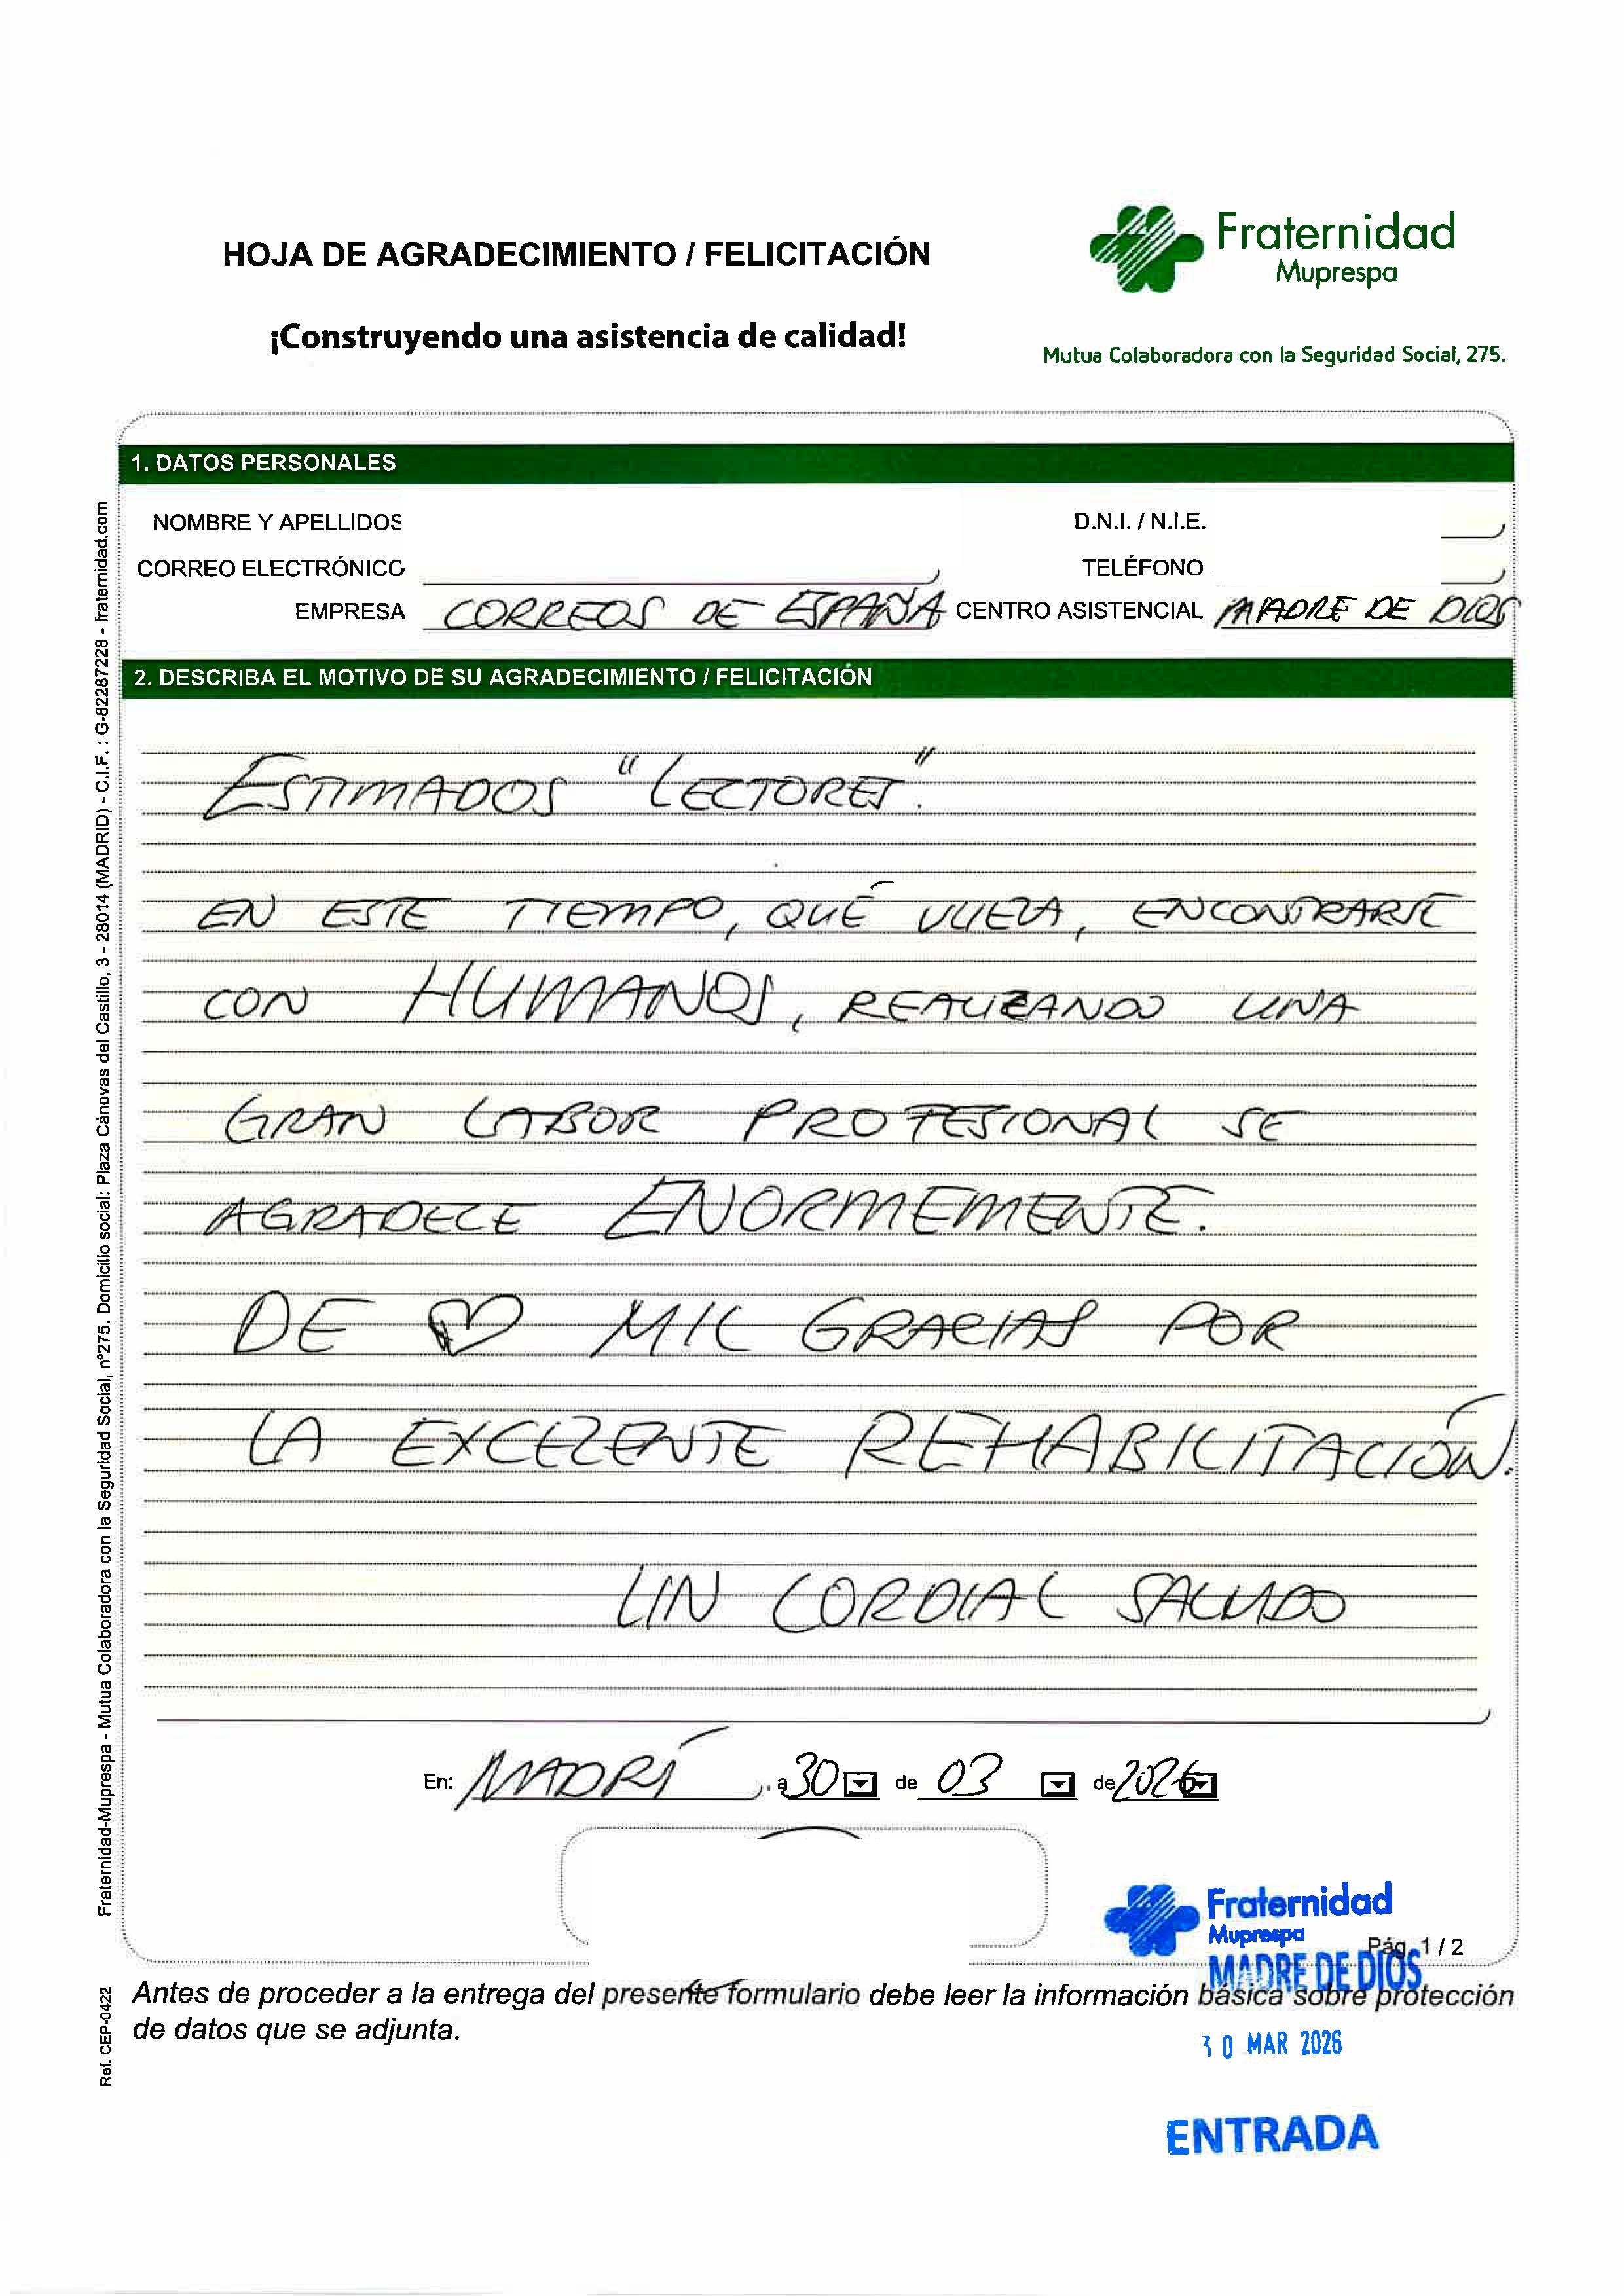 HOJA DE AGRADECIMIENTO / FELICITACIÓN
¡Construyendo una asistencia de calidad!
Fraternidad
Muprespa
Mutua Colaboradora con la Seguridad Social, 275.
1. DATOS PERSONALES
NOMBRE Y APELLIDOS
D.N.I. / N.I.E.
CORREO ELECTRÓNICO
TELÉFONO
EMPRESA CORREOS DE ESPAÑA CENTRO ASISTENCIAL MADRE DE DIOS
2. DESCRIBA EL MOTIVO DE SU AGRADECIMIENTO / FELICITACIÓN
ESTIMADOS "LECTORES".
EN ESTE TIEMPO, QUÉ VUELA, ENCONTRARSE
CON HUMANOS, REALIZANDO UNA
GRAN LABOR PROFESIONAL SE
AGRADECE ENORMEMENTE.
DE ♡ MIL GRACIAS POR
LA EXCELENTE REHABILITACIÓN.
UN CORDIAL SALUDO
En: MADRÍ, a 30 de 03 de 2026
Fraternidad
Muprespa
MADRE DE DIOS
Pág. 1 / 2
Antes de proceder a la entrega del presente formulario debe leer la información básica sobre protección
de datos que se adjunta.
30 MAR 2026
ENTRADA
Fraternidad-Muprespa - Mutua Colaboradora con la Seguridad Social, nº275. Domicilio social: Plaza Cánovas del Castillo, 3 - 28014 (MADRID) - C.I.F. : G-82287228 - fraternidad.com
Ref. CEP-0422